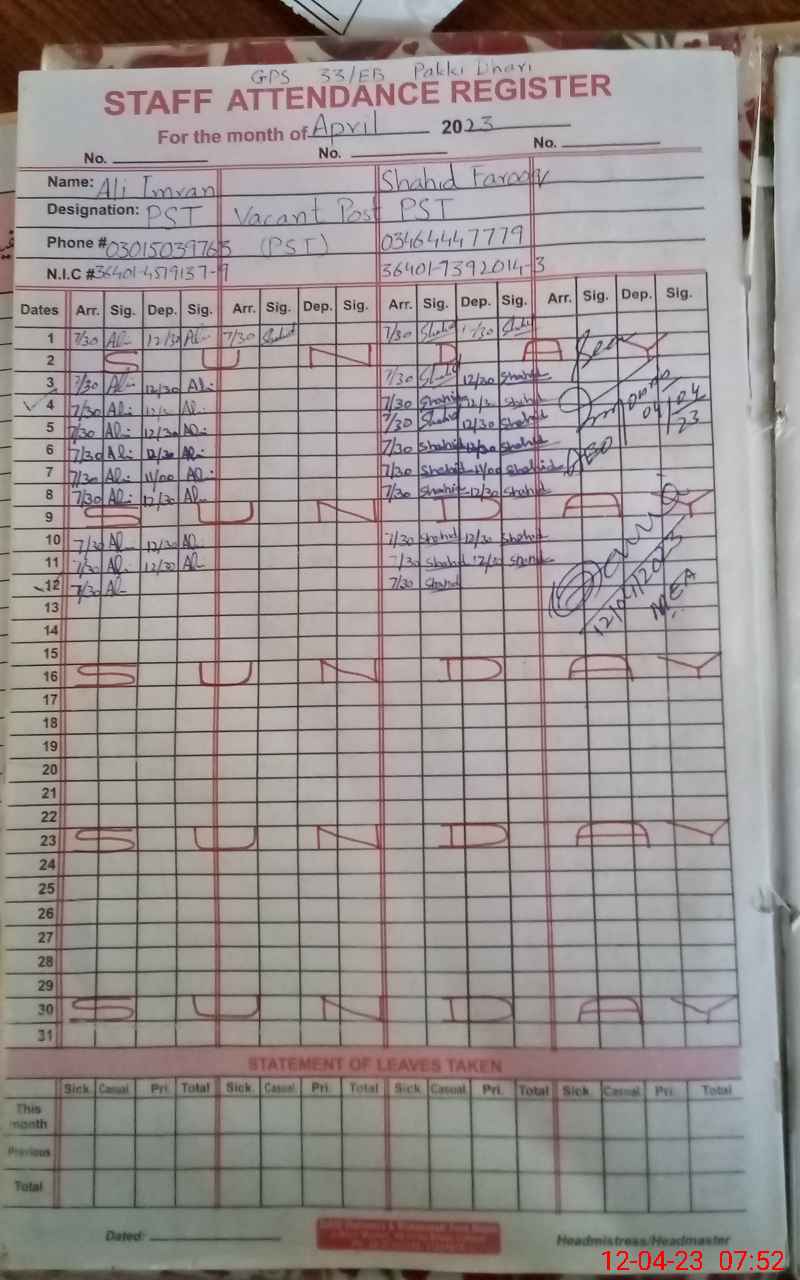 GPS 33/EB Pakki Dhari
STAFF ATTENDANCE REGISTER
For the month of April 2023
No. No. No.
Name: Ali Imran Shahid Farooq
Designation: PST Vacant Post PST
Phone # 03015039763 (PST) 03464447779
N.I.C # 36401-4579137-9 36401-7392014-3
Dates Arr. Sig. Dep. Sig. Arr. Sig. Dep. Sig. Arr. Sig. Dep. Sig. Arr. Sig. Dep. Sig.
1 7/30 Ali 12/30 Ali 7/30 Shahid 7/30 Shahid 12/30 Shahid
2 S U N D A Y
3 7/30 Ali 12/30 Ali 7/30 Shahid 12/30 Shahid
4 7/30 Ali 12/30 Ali 7/30 Shahid 12/30 Shahid
5 7/30 Ali 12/30 Ali 7/30 Shahid 12/30 Shahid 04/04/23
6 7/30 Ali 12/30 Ali 7/30 Shahid 12/30 Shahid
7 7/30 Ali 11/00 Ali 7/30 Shahid 11/00 Shahid AEO
8 7/30 Ali 12/30 Ali 7/30 Shahid 12/30 Shahid
9 S U N D A Y
10 7/30 Ali 12/30 Ali 7/30 Shahid 12/30 Shahid
11 7/30 Ali 12/30 Ali 7/30 Shahid 12/30 Shahid
12 7/30 Ali 7/30 Shahid 12/04/2023
13 MEA
14
15
16 S U N D A Y
17
18
19
20
21
22
23 S U N D A Y
24
25
26
27
28
29
30 S U N D A Y
31
STATEMENT OF LEAVES TAKEN
Sick. Casual Pri. Total Sick. Casual Pri. Total Sick. Casual Pri. Total Sick. Casual Pri. Total
This month
Previous
Total
Dated: Headmistress/Headmaster
12-04-23 07:52